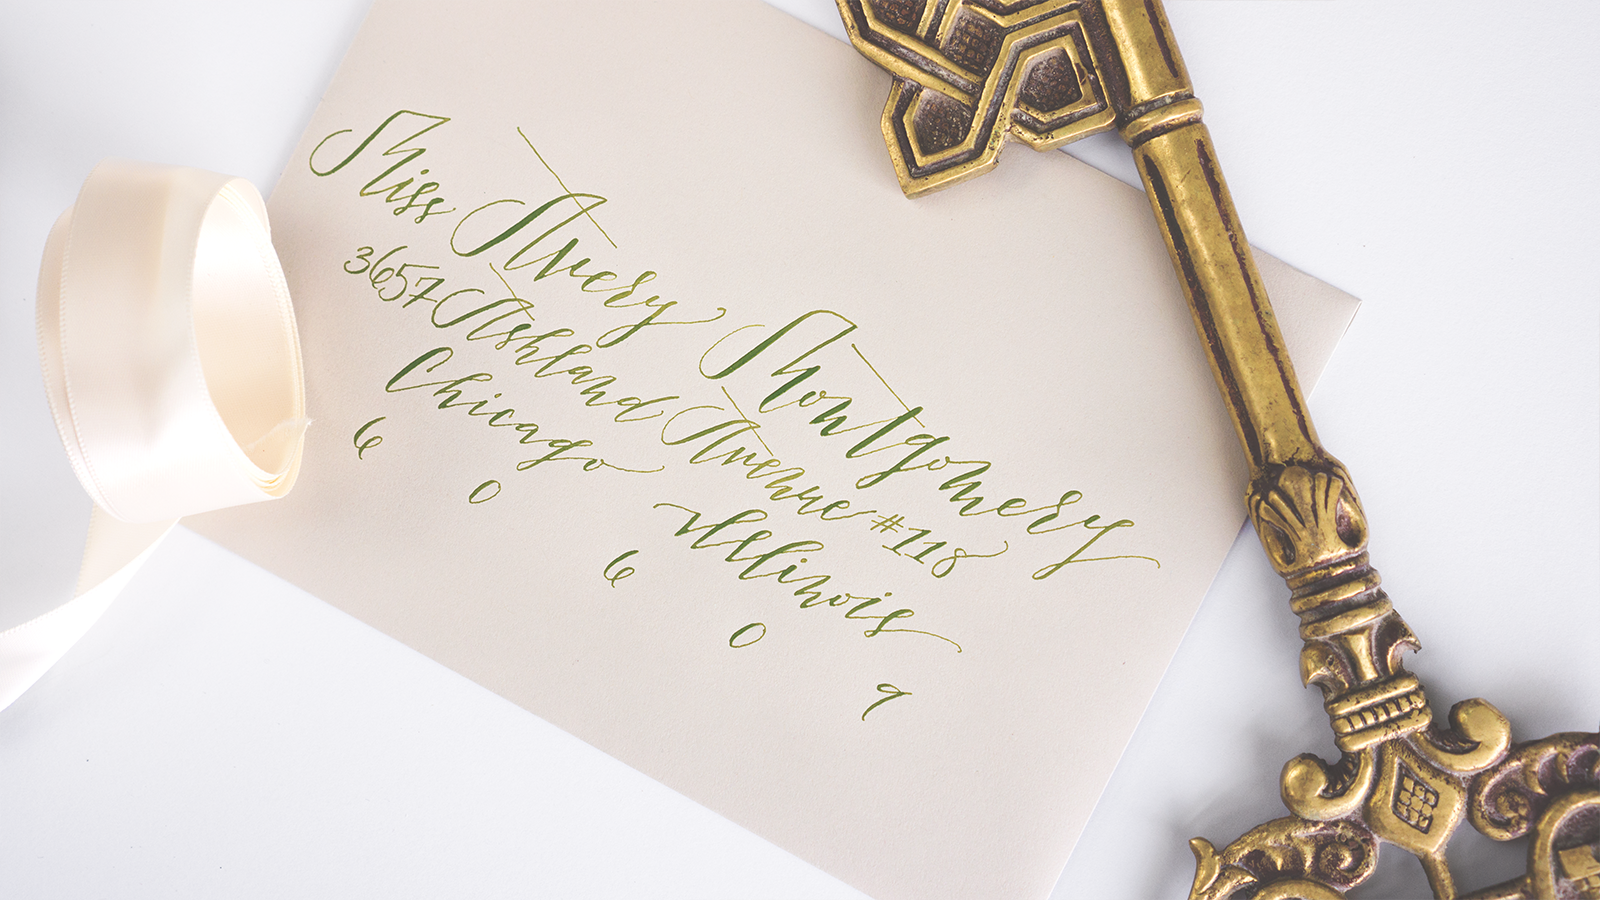 Miss Avery Montgomery
3657 Ashland Avenue #118
Chicago Illinois
6 0 6 0 9